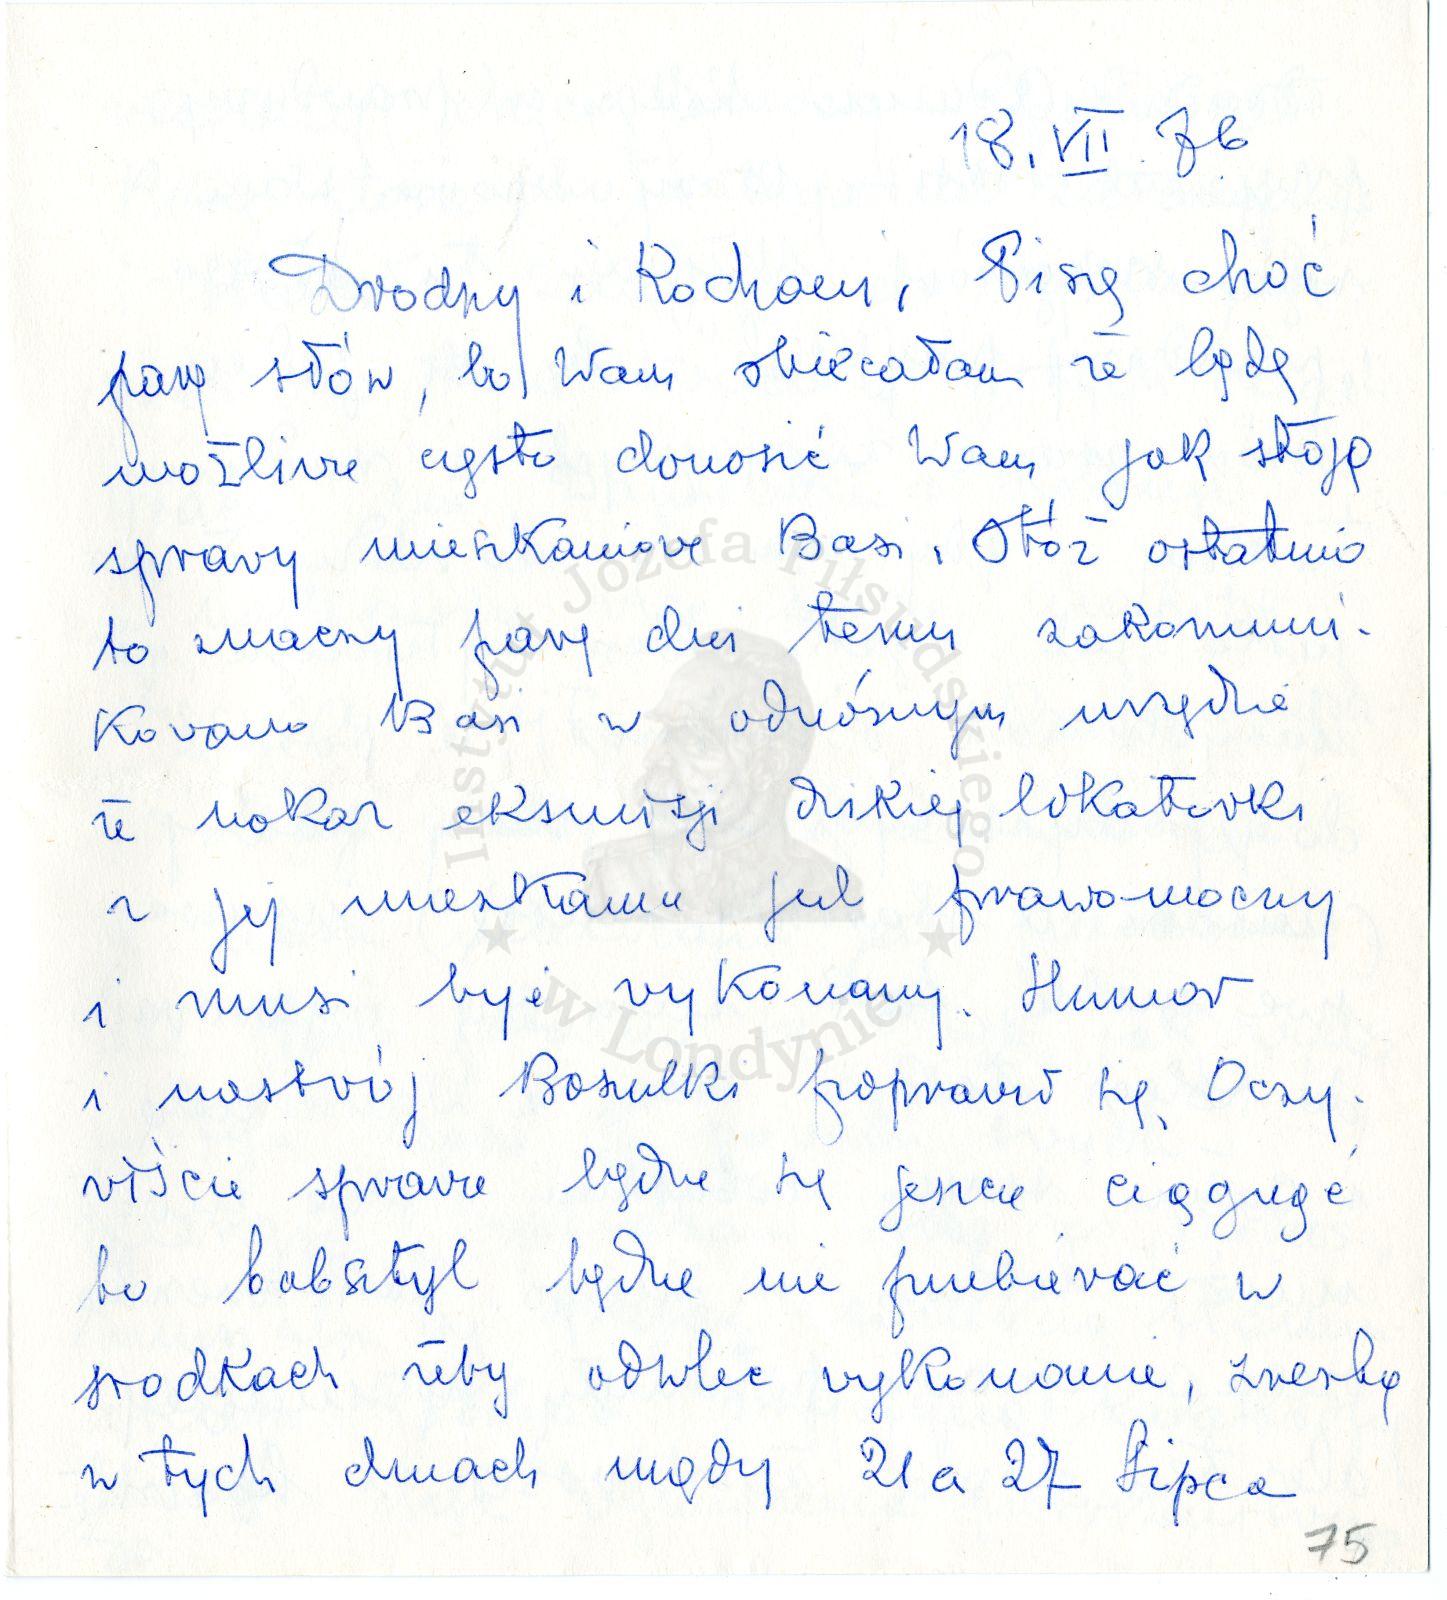 18. VII 76.
Drodzy i Kochani, Piszę choć
parę słów, bo Wam obiecałam że będę
możliwie często donosić Wam jak stoją
sprawy mieszkaniowe Basi. Otóż ostatnio
to znaczy parę dni temu zakomuni-
kowano Basi w odnośnym urzędzie
że nakaz eksmisji dzikiej lokatorki
z jej mieszkania jest prawo-mocny
i musi być wykonany. Humor
i nastrój Basiulki poprawił się. Oczy-
wiście sprawa będzie się jeszcze ciągnąć
bo babsztyl będzie nie przebierać w
środkach żeby odwlec wykonanie, zresztą
w tych dniach między 21 a 27 lipca
75
Instytut Józefa Piłsudskiego
w Londynie